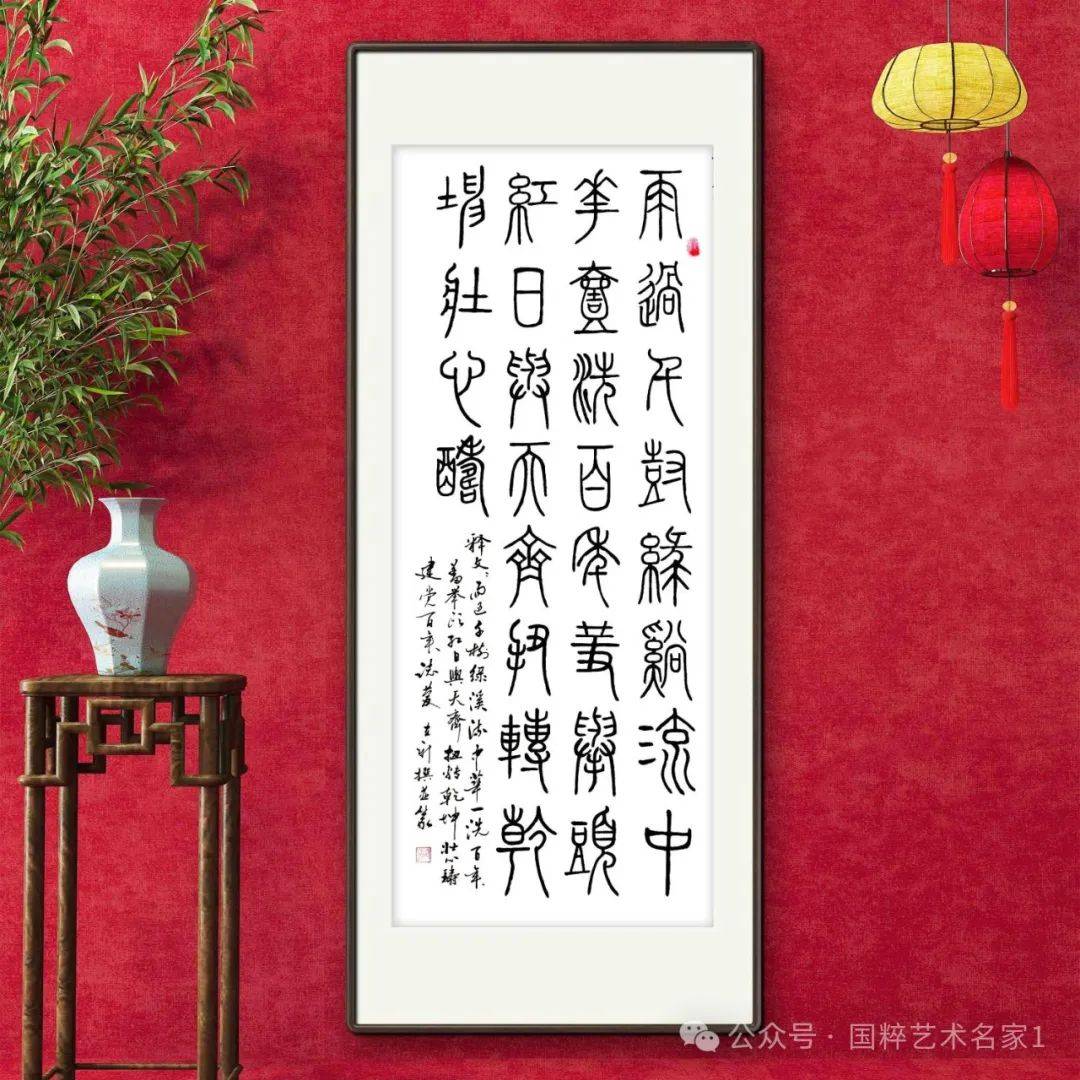 雨過千尌綠谿流中
華壹洗百年羞舉頭
紅日與天齊扭轉乾
坤壯心醻
释文：雨过千树绿溪流中華一洗百年
羞举头红日與天齊扭转乾坤壮心
建党百年 撰並篆
公众号 · 国粹艺术名家1